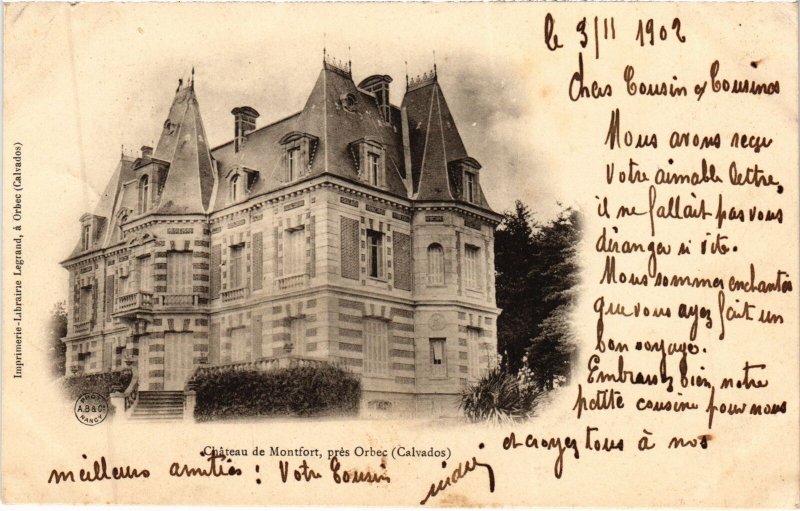 le 3/11 1902
Chers Cousin et Cousines
Nous avons reçu
votre aimable lettre,
il ne fallait pas vous
déranger si vite.
Nous sommes enchantés
que vous ayez fait un
bon voyage.
Embrassez bien notre
petite cousine pour nous
et croyez tous à nos
meilleurs amitiés : Votre Cousin
Château de Montfort, près Orbec (Calvados)
Imprimerie-Librairie Legrand, à Orbec (Calvados)
PHOT
A.B & Cie
NANCY